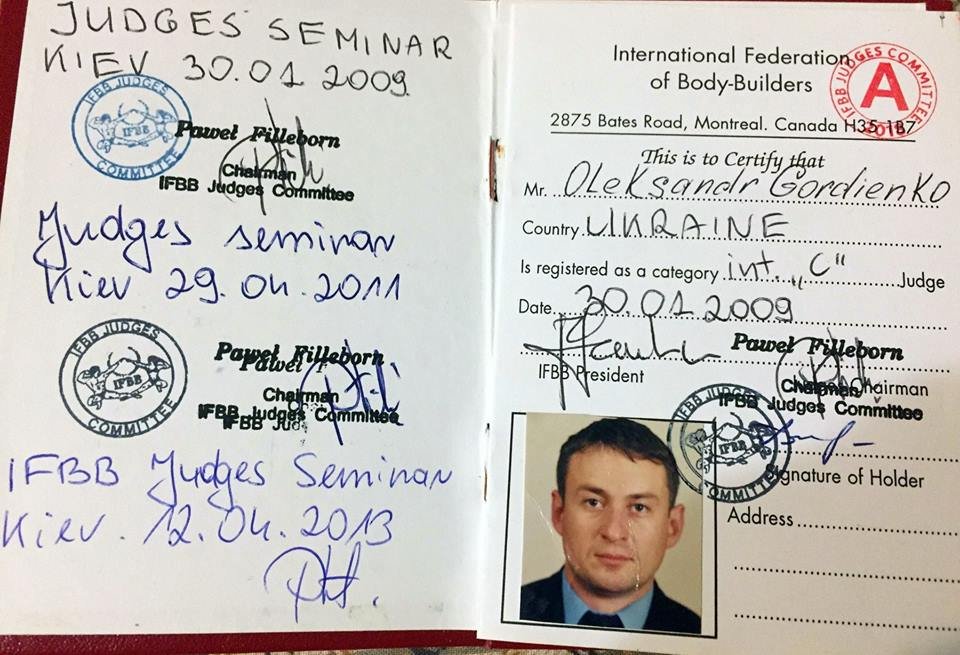 JUDGES SEMINAR
KIEV 30.01 2009
IFBB JUDGES
IFBB
COMMITTEE
Paweł Filleborn
Chairman
IFBB Judges Committee
Judges seminar
Kiev 29.04.2011
IFBB JUDGES
IFBB
COMMITTEE
Paweł Filleborn
Paweł F
Chairman
IFBB Judges Committee
IFBB Jud
IFBB Judges Seminar
Kiev. 12.04.2013
International Federation
of Body-Builders
IFBB JUDGES COMMITTEE
A
2875 Bates Road, Montreal. Canada H35 1B7
This is to Certify that
Mr. Oleksandr Gordienko
Country UKRAINE
Is registered as a category int. „C" Judge
Date 30.01.2009
Paweł Filleborn
IFBB President
Chairman
Chairman
IFBB Judges Committee
IFBB JUDGES
IFBB
COMMITTEE
Signature of Holder
Address